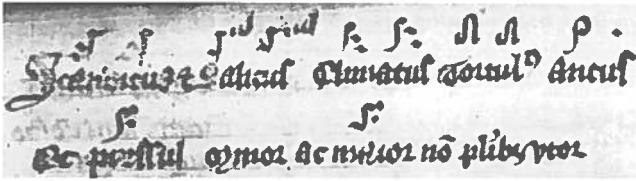 Scandicus & salicus Climacus Torculꝰ ancus
Et pressus mynor ac maior nō plʼibꝫ vtor